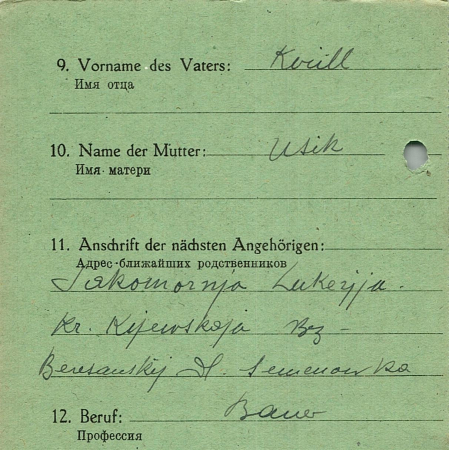 9. Vorname des Vaters: Kirill
Имя отца
10. Name der Mutter: Usik
Имя матери
11. Anschrift der nächsten Angehörigen:
Адрес ближайших родственников
Lukerjja.
Kr. Kijewskaja Bez-
Beresanskij D. Semenowka
12. Beruf: Bauer
Профессия